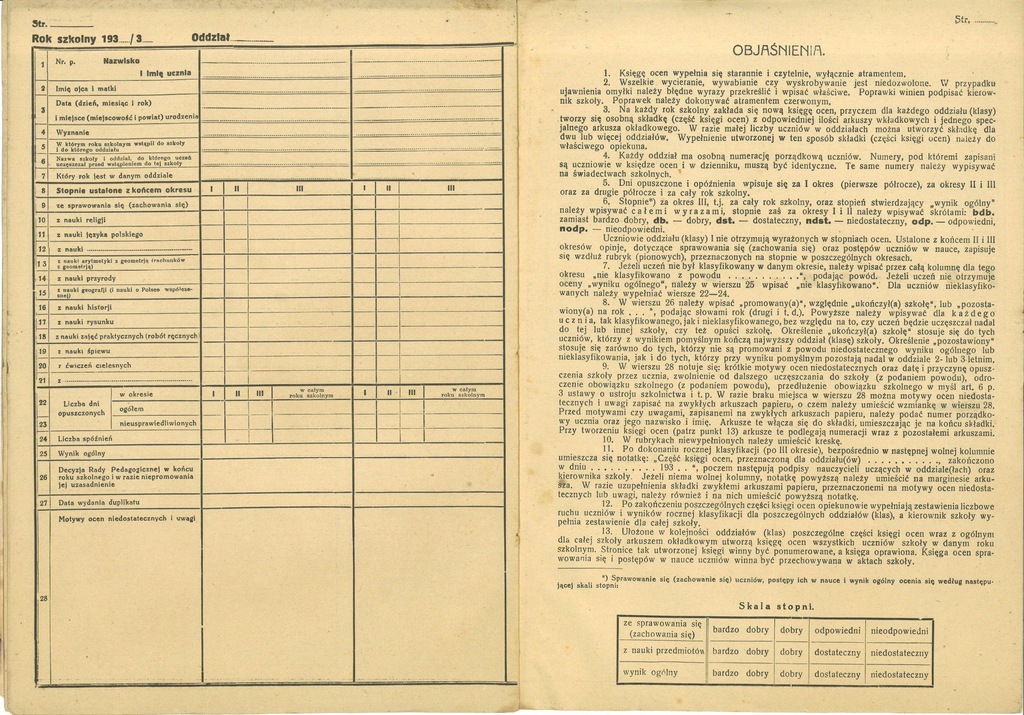 Str.
Rok szkolny 193 /3 Oddział
1 Nr. p. Nazwisko
i imię ucznia
2 Imię ojca i matki
3 Data (dzień, miesiąc i rok)
i miejsce (miejscowość i powiat) urodzenia
4 Wyznanie
5 W którym roku szkolnym wstąpił do szkoły
i do którego oddziału
6 Nazwa szkoły i oddział, do którego uczeń
uczęszczał przed wstąpieniem do tej szkoły
7 Który rok jest w danym oddziale
8 Stopnie ustalone z końcem okresu I II III I II III
9 ze sprawowania się (zachowania się)
10 z nauki religji
11 z nauki języka polskiego
12 z nauki
13 z nauki arytmetyki z geometrją (rachunków
z geometrją)
14 z nauki przyrody
15 z nauki geografji (i nauki o Polsce współcze-
snej)
16 z nauki historji
17 z nauki rysunku
18 z nauki zajęć praktycznych (robót ręcznych
19 z nauki śpiewu
20 z ćwiczeń cielesnych
21 z
22 Liczba dni opuszczonych w okresie I II III w całym roku szkolnym I II III w całym roku szkolnym
ogółem
23 nieusprawiedliwionych
24 Liczba spóźnień
25 Wynik ogólny
26 Decyzja Rady Pedagogicznej w końcu
roku szkolnego i w razie niepromowania
jej uzasadnienie
27 Data wydania duplikatu
Motywy ocen niedostatecznych i uwagi
28
Str.
OBJAŚNIENIA.
1. Księgę ocen wypełnia się starannie i czytelnie, wyłącznie atramentem.
2. Wszelkie wycieranie, wywabianie czy wyskrobywanie jest niedozwolone. W przypadku
ujawnienia omyłki należy błędne wyrazy przekreślić i wpisać właściwe. Poprawki winien podpisać kierow-
nik szkoły. Poprawek należy dokonywać atramentem czerwonym.
3. Na każdy rok szkolny zakłada się nową księgę ocen, przyczem dla każdego oddziału (klasy)
tworzy się osobną składkę (część księgi ocen) z odpowiedniej ilości arkuszy wkładkowych i jednego spec-
jalnego arkusza okładkowego. W razie małej liczby uczniów w oddziałach można utworzyć składkę dla
dwu lub więcej oddziałów. Wypełnienie utworzonej w ten sposób składki (części księgi ocen) należy do
właściwego opiekuna.
4. Każdy oddział ma osobną numerację porządkową uczniów. Numery, pod któremi zapisani
są uczniowie w księdze ocen i w dzienniku, muszą być identyczne. Te same numery należy wypisywać
na świadectwach szkolnych.
5. Dni opuszczone i opóźnienia wpisuje się za I okres (pierwsze półrocze), za okresy II i III
oraz za drugie półrocze i za cały rok szkolny.
6. Stopnie*) za okres III, t.j. za cały rok szkolny, oraz stopień stwierdzający „wynik ogólny"
należy wpisywać całemi wyrazami, stopnie zaś za okresy I i II należy wpisywać skrótami: bdb.
zamiast bardzo dobry, db. — dobry, dst. — dostateczny, ndst. — niedostateczny, odp. — odpowiedni,
nodp. — nieodpowiedni.
Uczniowie oddziału (klasy) I nie otrzymują wyrażonych w stopniach ocen. Ustalone z końcem II i III
okresów opinje, dotyczące sprawowania się (zachowania się) oraz postępów uczniów w nauce, zapisuje
się wzdłuż rubryk (pionowych), przeznaczonych na stopnie w poszczególnych okresach.
7. Jeżeli uczeń nie był klasyfikowany w danym okresie, należy wpisać przez całą kolumnę dla tego
okresu „nie klasyfikowano z powodu . . . . . . . . . . . ", podając powód. Jeżeli uczeń nie otrzymuje
oceny „wyniku ogólnego", należy w wierszu 25 wpisać „nie klasyfikowano". Dla uczniów nieklasyfiko-
wanych należy wypełniać wiersze 22—24.
8. W wierszu 26 należy wpisać „promowany(a)", względnie „ukończył(a) szkołę", lub „pozosta-
wiony(a) na rok . . . ", podając słowami rok (drugi i t. d.). Powyższe należy wpisywać dla każdego
ucznia, tak klasyfikowanego, jak i nieklasyfikowanego, bez względu na to, czy uczeń będzie uczęszczał nadal
do tej lub innej szkoły, czy też opuści szkołę. Określenie „ukończył(a) szkołę" stosuje się do tych
uczniów, którzy z wynikiem pomyślnym kończą najwyższy oddział (klasę) szkoły. Określenie „pozostawiony"
stosuje się zarówno do tych, którzy nie są promowani z powodu niedostatecznego wyniku ogólnego lub
nieklasyfikowania, jak i do tych, którzy przy wyniku pomyślnym pozostają nadal w oddziale 2- lub 3-letnim.
9. W wierszu 28 notuje się: krótkie motywy ocen niedostatecznych oraz datę i przyczynę opusz-
czenia szkoły przez ucznia, zwolnienie od dalszego uczęszczania do szkoły (z podaniem powodu), odro-
czenie obowiązku szkolnego (z podaniem powodu), przedłużenie obowiązku szkolnego w myśl art. 6 p.
3 ustawy o ustroju szkolnictwa i t. p. W razie braku miejsca w wierszu 28 można motywy ocen niedosta-
tecznych i uwagi zapisać na zwykłych arkuszach papieru, o czem należy umieścić wzmiankę w wierszu 28.
Przed motywami czy uwagami, zapisanemi na zwykłych arkuszach papieru, należy podać numer porządko-
wy ucznia oraz jego nazwisko i imię. Arkusze te włącza się do składki, umieszczając je na końcu składki.
Przy tworzeniu księgi ocen (patrz punkt 13) arkusze te podlegają numeracji wraz z pozostałemi arkuszami.
10. W rubrykach niewypełnionych należy umieścić kreskę.
11. Po dokonaniu rocznej klasyfikacji (po III okresie), bezpośrednio w następnej wolnej kolumnie
umieszcza się notatkę: „Część księgi ocen, przeznaczoną dla oddziału(ów) . . . . . . . . . . ., zakończono
w dniu . . . . . . . . . . 193 . . ", poczem następują podpisy nauczycieli uczących w oddziale(tach) oraz
kierownika szkoły. Jeżeli niema wolnej kolumny, notatkę powyższą należy umieścić na marginesie arku-
sza. W razie uzupełnienia składki zwykłemi arkuszami papieru, przeznaczonemi na motywy ocen niedosta-
tecznych lub uwagi, należy również i na nich umieścić powyższą notatkę.
12. Po zakończeniu poszczególnych części księgi ocen opiekunowie wypełniają zestawienia liczbowe
ruchu uczniów i wyników rocznej klasyfikacji dla poszczególnych oddziałów (klas), a kierownik szkoły wy-
pełnia zestawienie dla całej szkoły.
13. Ułożone w kolejności oddziałów (klas) poszczególne części księgi ocen wraz z ogólnym
dla całej szkoły arkuszem okładkowym utworzą księgę ocen wszystkich uczniów szkoły w danym roku
szkolnym. Stronice tak utworzonej księgi winny być ponumerowane, a księga oprawiona. Księga ocen spra-
wowania się i postępów w nauce uczniów winna być przechowywana w aktach szkoły.
*) Sprawowanie się (zachowanie się) uczniów, postępy ich w nauce i wynik ogólny ocenia się według następu-
jącej skali stopni:
Skala stopni.
ze sprawowania się (zachowania się) bardzo dobry dobry odpowiedni nieodpowiedni
z nauki przedmiotów bardzo dobry dobry dostateczny niedostateczny
wynik ogólny bardzo dobry dobry dostateczny niedostateczny